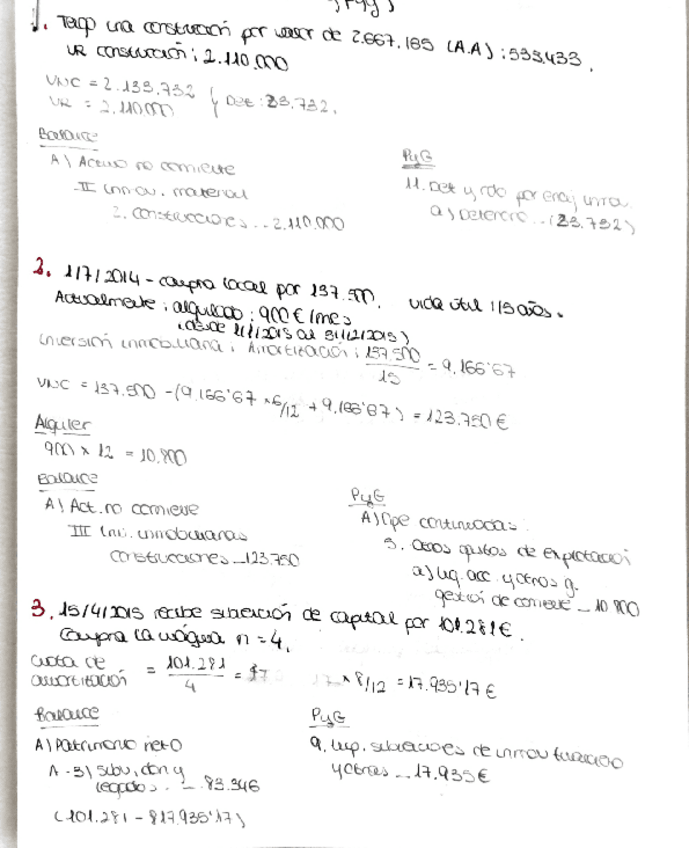 1. Tengo una construcción por valor de 2.667.165 (A.A) : 533.433.
VR construcción : 2.110.000
VNC = 2.133.732
VR = 2.110.000 } Det : 23.732.
Balance
A) Activo no corriente
II Inmov. material
2. Construcciones... 2.110.000
PyG
11. Det y rdo por enaj inmov.
a) Deterioro... (23.732)
2. 1/7/2014 - compra local por 137.500. vida útil : 15 años.
Actualmente : alquilado : 900 € /mes
(desde 1/1/2015 al 31/12/2015)
Inversión inmobiliaria ; Amortización : 137.500 / 15 = 9.166'67
VNC = 137.500 - (9.166'67 × 6/12 + 9.166'67) = 123.750 €
Alquiler
900 × 12 = 10.800
Balance
A) Act. no corriente
III Inv. inmobiliarias
Construcciones - 123.750
PyG
A) Ope continuadas :
5. Otros gastos de explotación
a) Ing. acc. y otros g.
gestión de corriente - 10.800
3. 15/4/2015 recibe subvención de capital por 101.281 €.
Compra la máquina n = 4.
Cuota de amortización = 101.281 / 4 =
× 8/12 = 17.935'17 €
Balance
A) Patrimonio neto
A-3) Subv, don y
legados. - 83.346
(101.281 - 817.935'17)
PyG
9. Imp. subvenciones de inmov financiero
y otras - 17.935 €